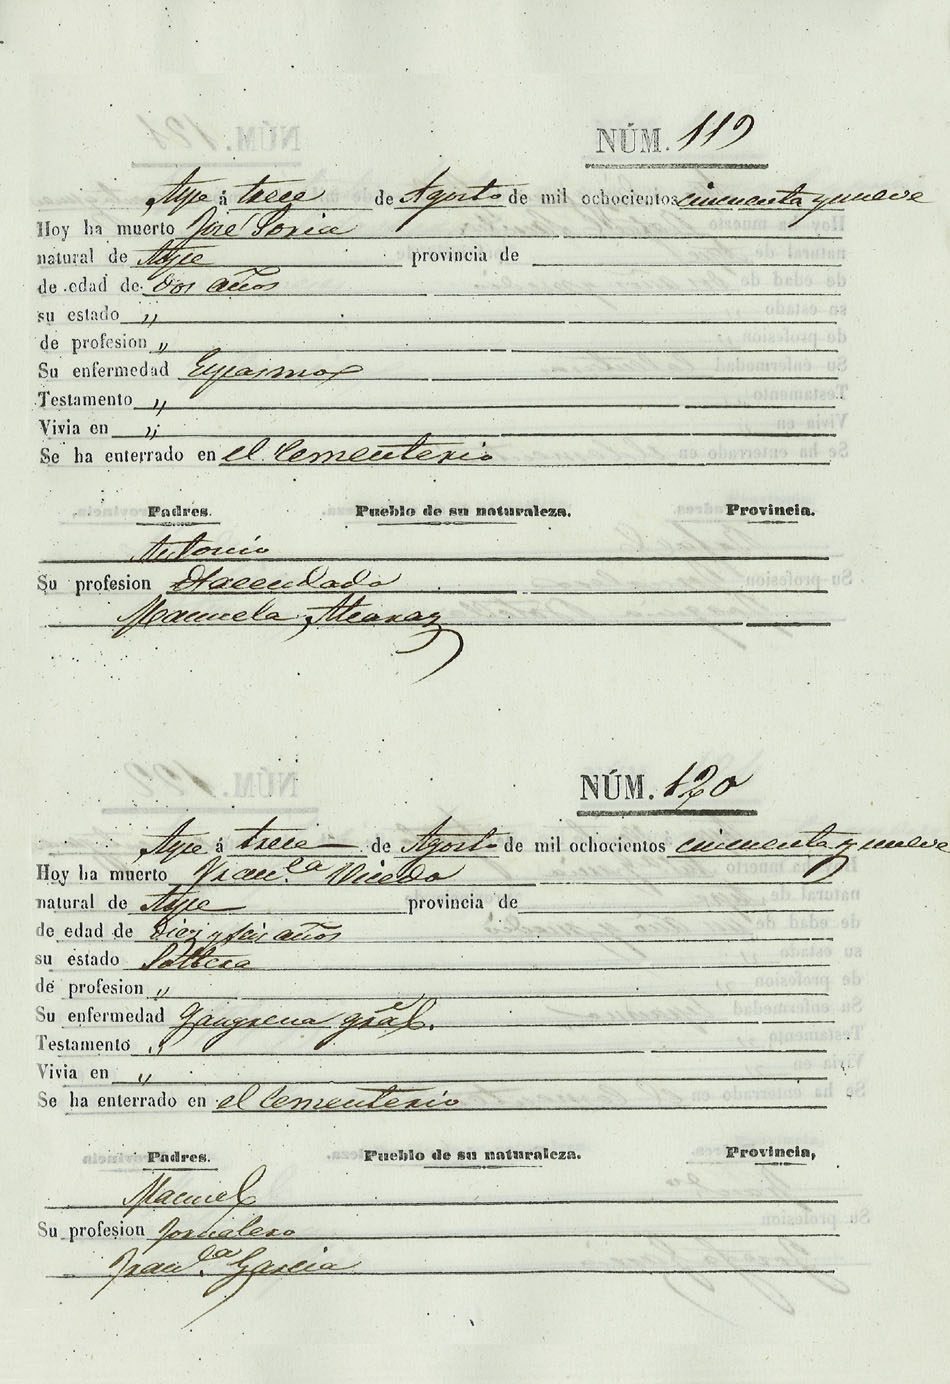 NÚM. 119
Aspe á trece de Agosto de mil ochocientos cincuenta y nueve
Hoy ha muerto José Soria
natural de Aspe provincia de
de edad de dos años
su estado "
de profesion "
Su enfermedad Espasmos
Testamento "
Vivia en "
Se ha enterrado en el Cementerio
Padres. Pueblo de su naturaleza. Provincia.
Antonio
Su profesion Hacendado
Manuela Alcaraz
NÚM. 120
Aspe á trece de Agosto de mil ochocientos cincuenta y nueve
Hoy ha muerto Fran.ca Vicedo
natural de Aspe provincia de
de edad de Diez y seis años
su estado Soltera
de profesion "
Su enfermedad gangrena gral.
Testamento "
Vivia en "
Se ha enterrado en el Cementerio
Padres. Pueblo de su naturaleza. Provincia,
Manuel
Su profesion Jornalero
Fran.ca Garcia